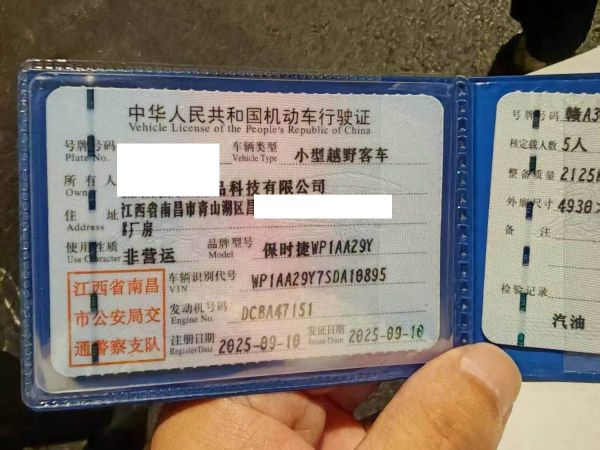 中华人民共和国机动车行驶证
Vehicle License of the People's Republic of China
号牌号码
Plate No.
车辆类型 小型越野客车
Vehicle Type
所有人 品科技有限公司
Owner
住址 江西省南昌市青山湖区昌
Address 厂房
使用性质 非营运
Use Character
品牌型号 保时捷WP1AA29Y
Model
江西省南昌
市公安局交
通警察支队
车辆识别代号 WP1AA29Y7SDA10895
VIN
发动机号码 DCBA47151
Engine No.
注册日期 2025-09-10
Register Date
发证日期 2025-09-10
Issue Date
号牌号码 赣A3
核定载人数 5人
整备质量 2125
外廓尺寸 4930×
备注
检验记录
汽油